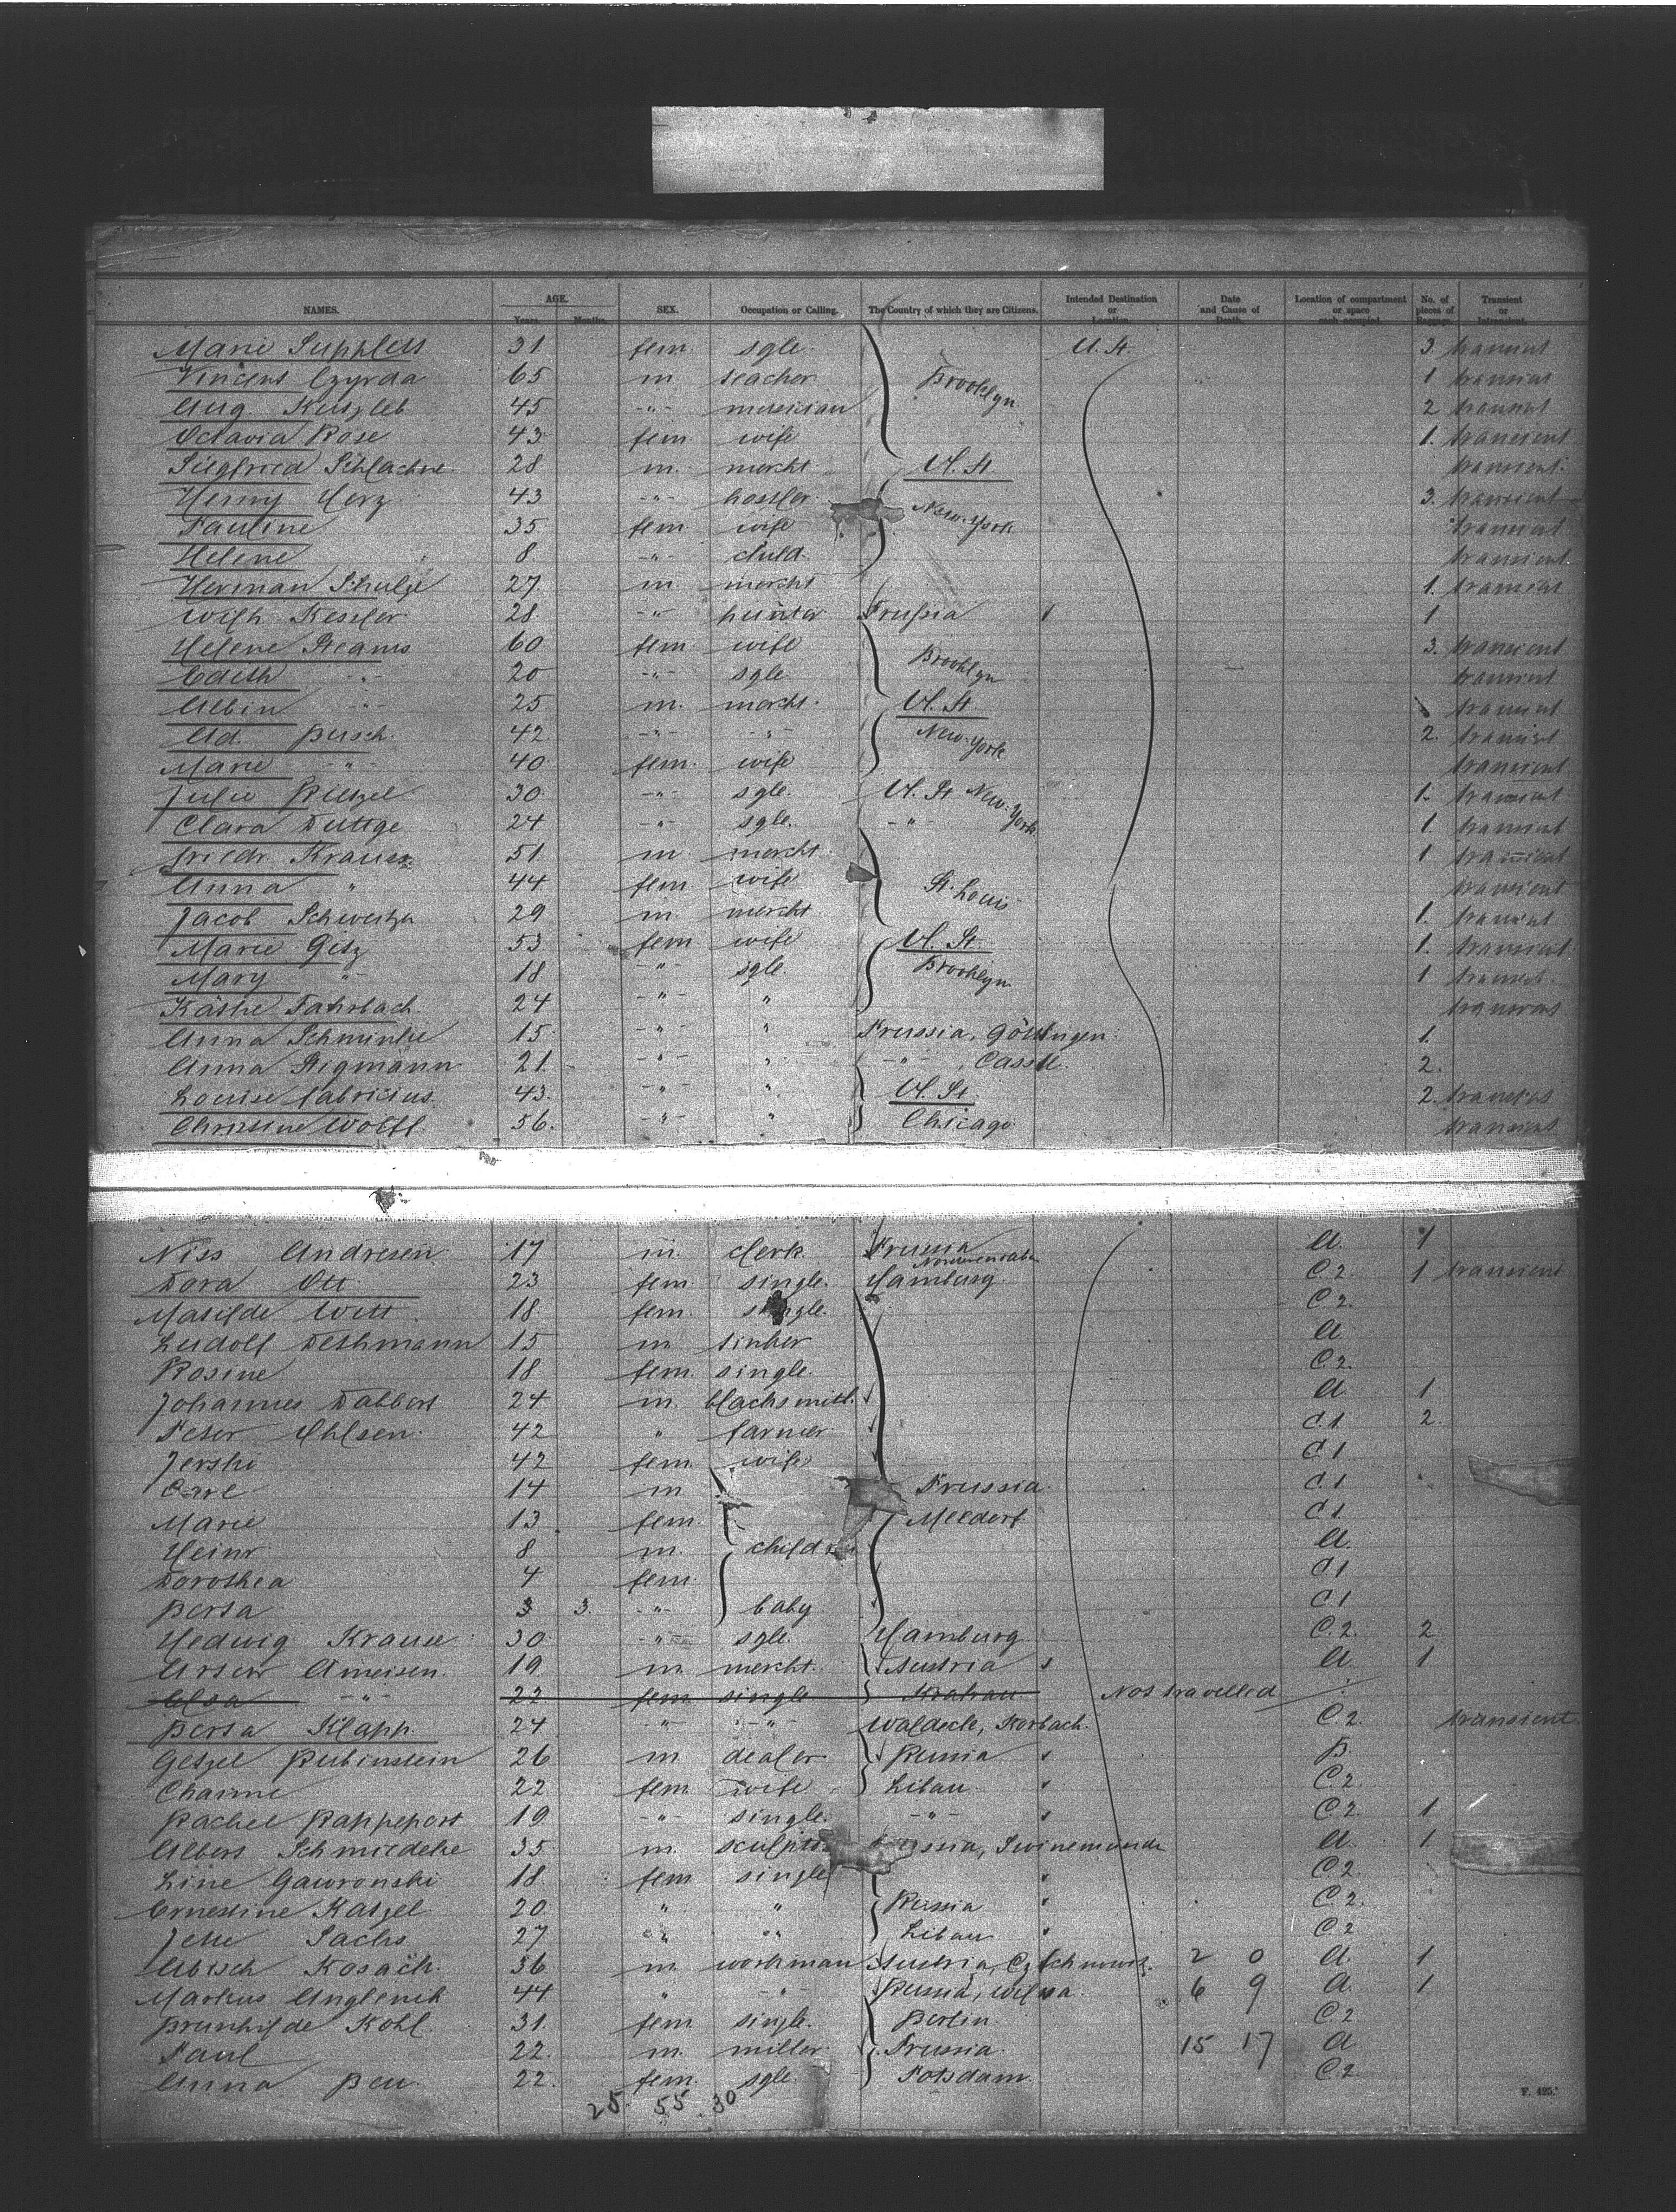 NAMES. AGE. Years. Months. SEX. Occupation or Calling. The Country of which they are Citizens. Intended Destination or Location. Date and Cause of Death. Location of compartment or space each occupied. No. of pieces of Baggage. Transient or Intransient.
Marie 31 fem sgle. U. St. 3 transient
Vincens Czyrda 65 m teacher Brooklyn 1 transient
Aug. 45 -"- musician 2 transient
Octavia Rose 43 fem wife 1. transient
Siegfried 28 m. mercht. U. St transient
Henny Herz 43 -"- hostler New-York 3. transient
Pauline 35 fem wife transient
Helene 8 -"- child. transient
Herman Schulze 27 m mercht 1. transient
Wilh Kessler 28 -"- hunter Prussia 1
Helene Stearns 60 fem wife Brooklyn 3. transient
Edith -"- 20 -"- sgle transient
Albin -"- 25 m. mercht. U. St. transient
Ad. Busch. 42 -"- -"- New-York 2. transient
Marie -"- 40 fem. wife transient
Julie 30 -"- sgle. U. St New-York 1. transient
Clara Duttge 24 -"- sgle. -"- 1. transient
Friedr Krauss 51 m mercht. 1 transient
Anna " 44 fem wife St. Louis transient
Jacob 29 m. mercht 1. transient
Marie Götz 53 fem wife U. St. 1. transient
Mary -"- 18 -"- sgle. Brooklyn 1 transient
Käthe Fahrbach. 24 -"- " transient
Anna Schminke 15 -"- " Prussia, Göttingen 1.
Anna Stigmann 21. -"- " -"- , Cassel. 2.
Louise Fabricius. 43. -"- " U. St 2. transient
Christine Wolff 56. -"- " Chicago transient
Niss Andresen 17 m. clerk. Prussia A. 1
Dora Ott 23 fem single. Hamburg C.2. 1 transient
Matilde Witt 18. fem. single. C.2.
Ludolf Dethmann 15 m A.
Rosine 18 fem. single. C.2.
Johannes Dabbert 24 m. blacksmith. A. 1
Peter Ohlsen 42 " farmer C.1 2.
42 fem. wife C.1
Carl 14 m Prussia. C.1
Marie 13 fem. Meldorf C.1
Heinr 8 m. A.
Dorothea 4 fem. C.1
Berta 3 3. -"- baby C.1
Hedwig Krause 30 -"- sgle. Hamburg C.2. 2
Artur Ameisen. 19 m. mercht. Austria A 1
Elsa -"- 22 fem. single Krakau Not travelled
Berta Klapp 24 -"- -"- Waldeck, Korbach. C.2. transient
Getzel Rubinstein 26 m dealer Russia B.
22 fem wife Libau. C.2.
Rachel Rappeport 19 -"- single. -"- C.2. 1
Albert Schmiedeke 35 m. sculptor ssia, Swinemünde A. 1
Line Gawronski 18. fem single C.2.
Ernestine Katzel 20 " " Russia C.2.
Jette Sachs 27 " " Libau C.2
Abisch 36 m. workman Austria, 2 0 A. 1
Markus 44 " -"- Russia, Wilna. 6 9 A. 1
Brunhilde Kohl. 31. fem single. Berlin. C.2
Paul 22. m. miller. Prussia. 15 17 A
Anna 22. fem. sgle Potsdam C.2
25. 55. 30
F. 495.